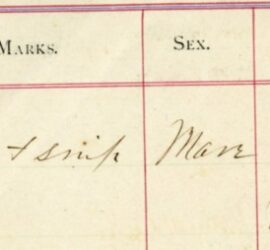 Marks. Sex.
+ snip Mare